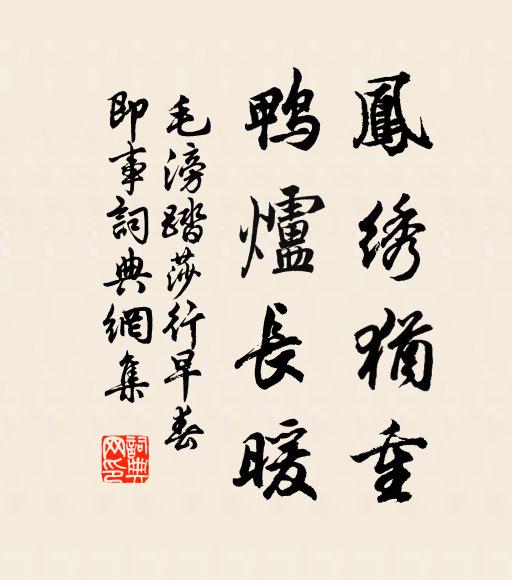 鳳綉猶重
鴨爐長暖
毛滂踏莎行早春
即事詞典網集
詞典網印